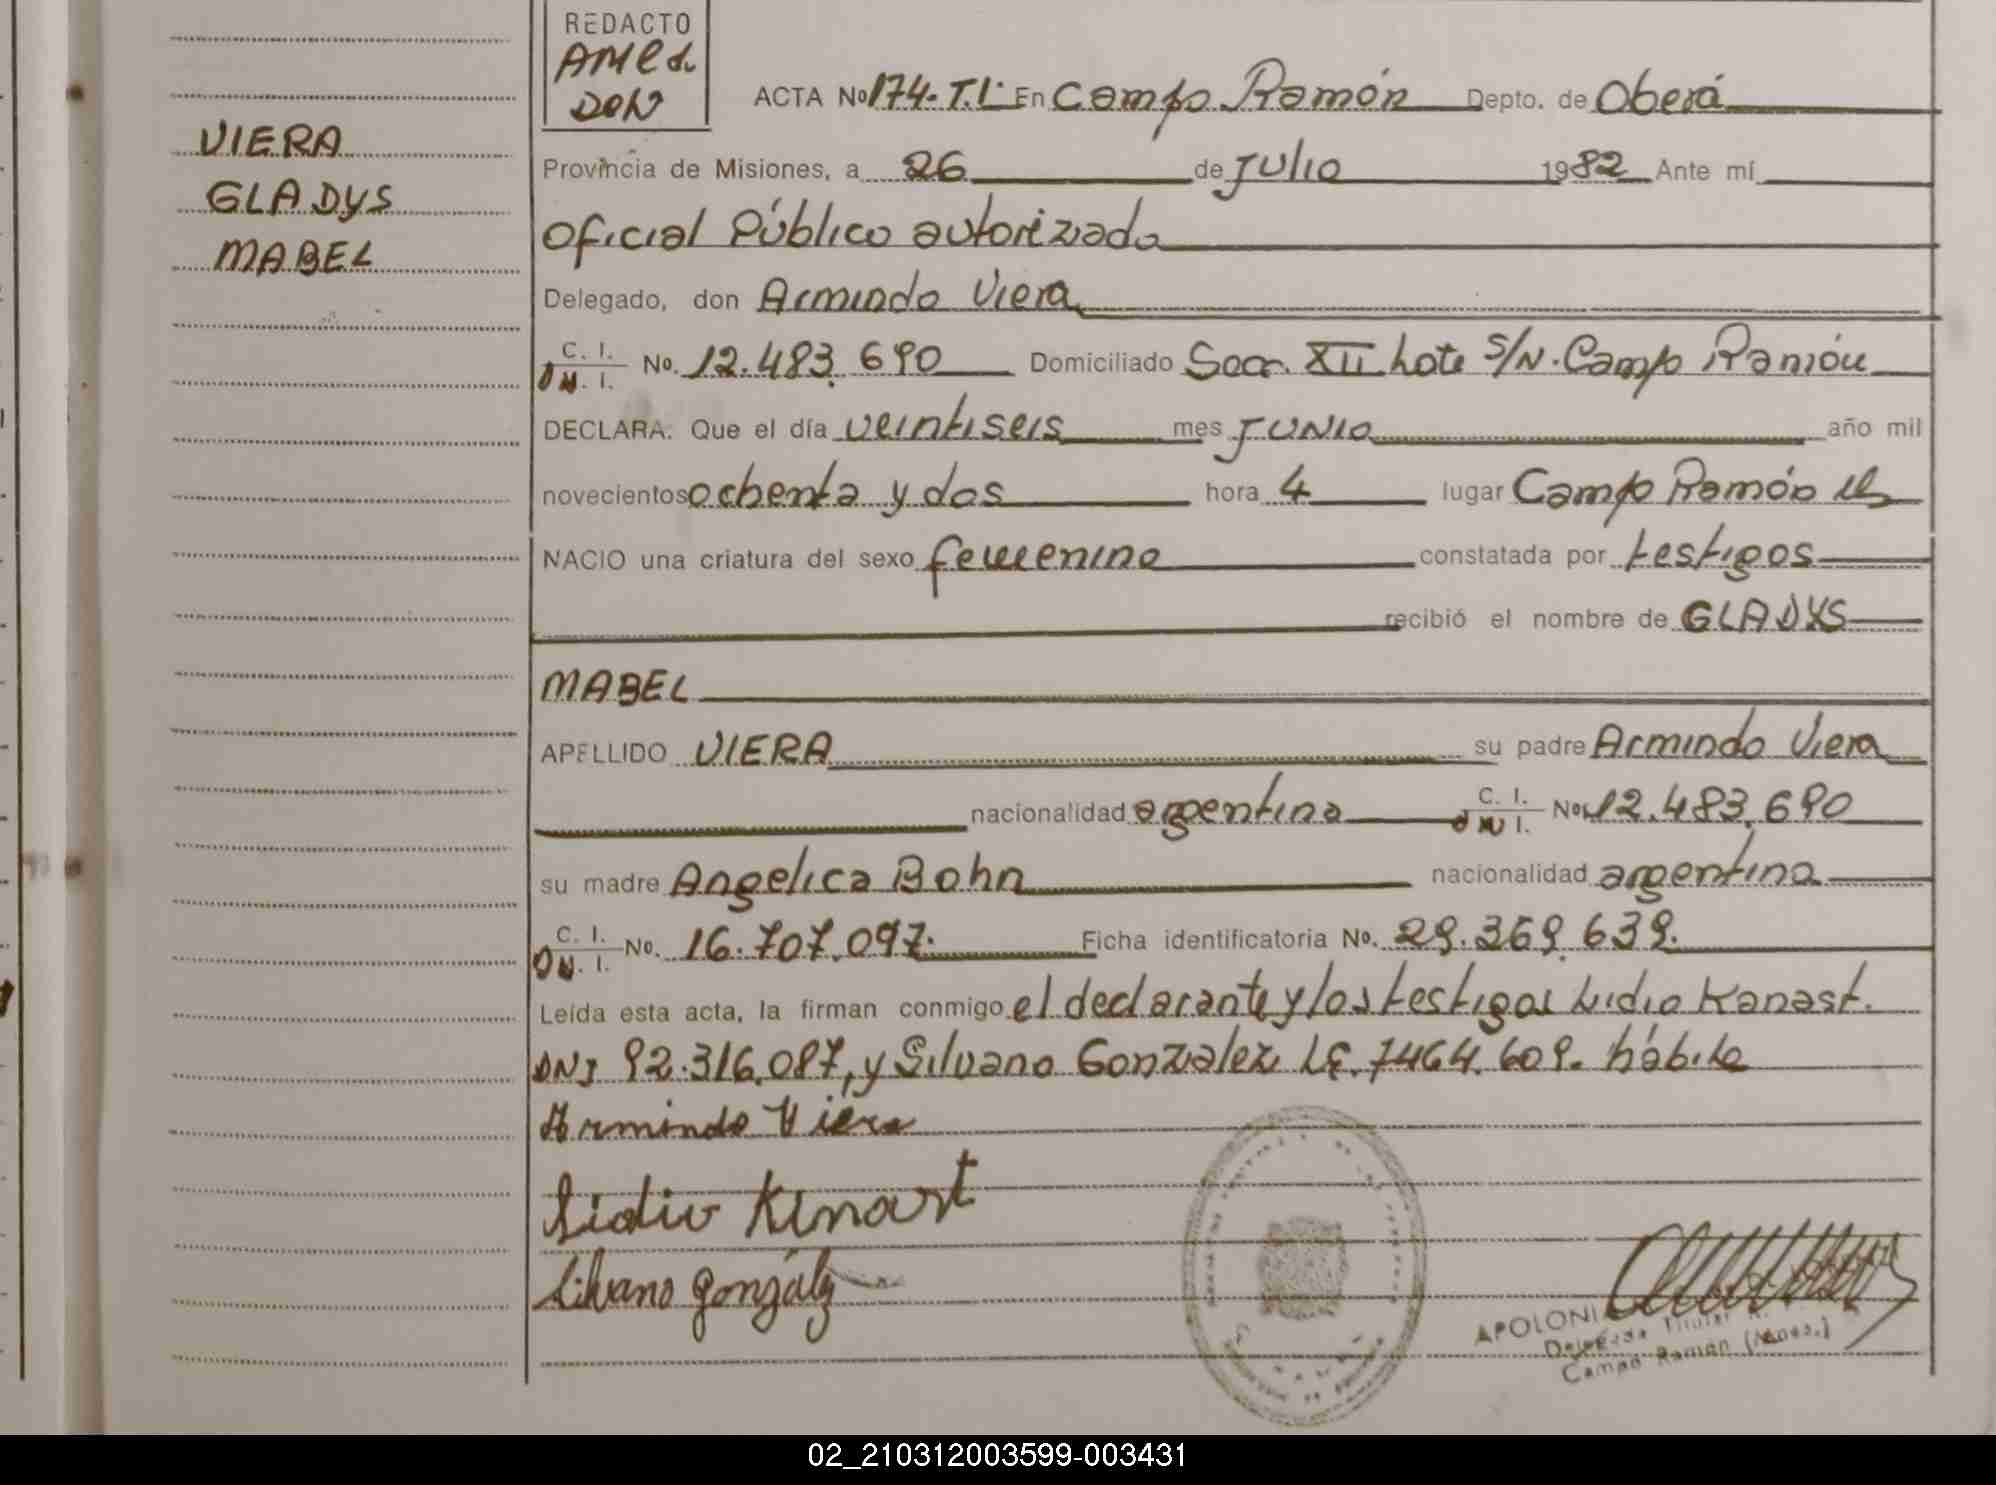 REDACTO
VIERA
GLADYS
MABEL
ACTA No 174-T.1: En Campo Ramón Depto. de Oberá
Provincia de Misiones, a 26 de Julio 1982 Ante mí
Oficial Público autorizado
Delegado, don Armindo Viera
C. I. No. 12.483.690 Domiciliado Secc. XII Lote S/N. Campo Ramón
D N. I.
DECLARA. Que el día veintiseis mes JUNIO año mil
novecientos ochenta y dos hora 4 lugar Campo Ramón
NACIO una criatura del sexo femenino constatada por testigos
recibió el nombre de GLADYS
MABEL
APELLIDO VIERA su padre Armindo Viera
nacionalidad argentina C. I. No. 12.483.690
D N I.
su madre Angelica Bohn nacionalidad argentina
C. I. No. 16.707.097. Ficha identificatoria No. 29.369.639.
D N. I.
Leída esta acta, la firman conmigo el declarante y los testigos Lidio Kanast.
DNI 92.316.087, y Silvano Gonzalez LE. 7464.609. hábile
Armindo Viera
Lidio Kinast
Silvano Gonzálz
APOLONI
Delegado Titular
Campo Ramón (Mnes.)
02_210312003599-003431